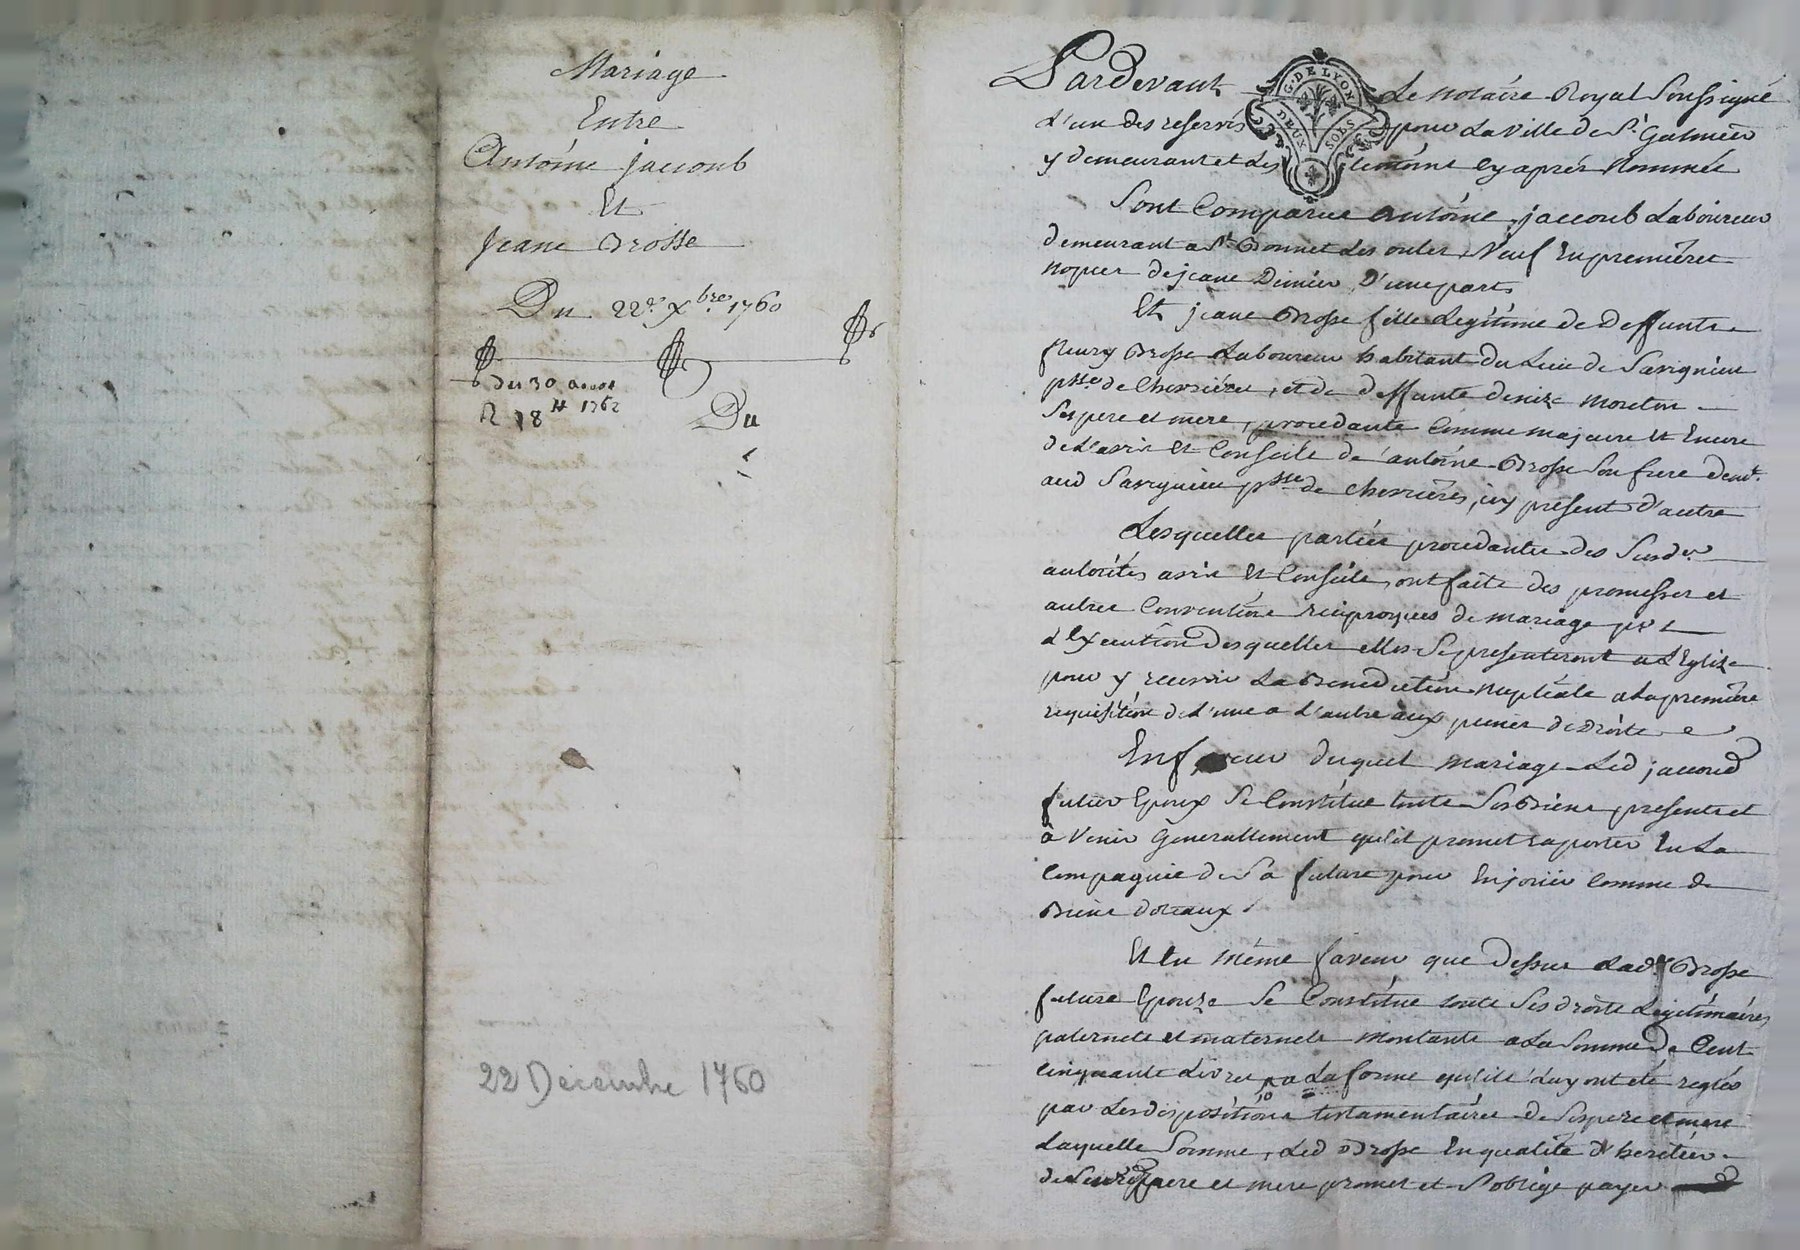 Mariage
Entre
Antoine jacoub
Et
Jeane Brosse
Du 22e. Xbre. 1760
du 30 aout
1762
Du
22 Decembre 1760
G. DE LYON
DEUX SOLS
Pardevant Le notaire Royal Soussigné
L'un des reservés pour La Ville de St. Galmier
y demeurant et Les temoins Cy après Nommés
Sont Comparus Antoine jacoub Laboureur
demeurant a St Bonnet Les oules, Veuf En premieres
nopces de jeane Dimier D'une part
Et jeane Brosse fille Legitime de deffunts
fleury Brosse Laboureur habitant du Lieu de Savignieu
psse de Chevrières, et de deffunte denize Moreton
Ses pere et mere, procedante Comme majeure Et Encore
de L'avis Et Conseils de antoine Brosse Son frere demt.
aud Savignieu psse de Chevrières, icy present d'autre
Lesquelles parties procedantes des Susd.
autorités avis Et Conseils, ont faits des promesses et
autres Conventions reciproques de mariage pr L
L'Execution desquelles elles Se presenteront a L'Eglize
pour y recevoir La Benediction Nuptiale a La premiere
requisition de L'une a L'autre aux peines de Droits
En faveur duquel mariage Led jacoud
futur Epoux Se Constitue touts Ses Biens, presents et
à Venir Generallement qu'il promet aporter En La
Compagnie de Sa future pour En jouir Comme de
Biens dotaux
Et En même faveur que dessus Lad. Brosse
future Epouze Se Constitue touts Ses droits Legitimaires
paternels et maternels montants a La Somme de Cent
Cinquante Livres a La forme qu'ils Luy ont été reglés
par Les dispositions testamentaires de Ses pere et mere
Laquelle Somme, Led Brosse En qualité d'heritier
de Leurs pere et mere promet et S'oblige payer